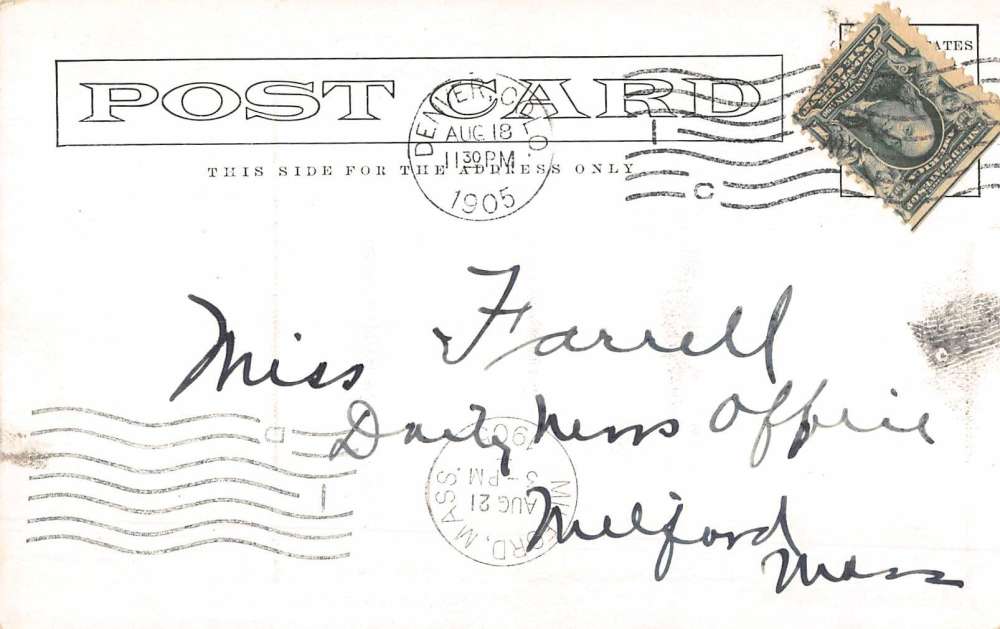 POST CARD
THIS SIDE FOR THE ADDRESS ONLY
DENVER, COLO
AUG 18
11 30 PM
1905
C
Miss Farrell
Daily News Office
Milford
Mass
MILFORD, MASS.
AUG 21
3-PM
D